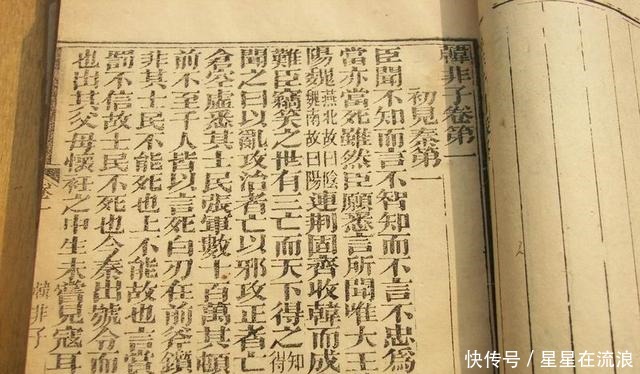 韓非子卷第一
初見秦第一
臣聞不知而言不智知而不言不忠為
當亦當死雖然臣願悉言所聞唯大王
陽魏燕北故曰陰魏南故曰陽連荆固齊收韓而成
難臣竊笑之世有三亡而天下得之知得
聞之曰以亂攻治者亡以邪攻正者亡
倉空虛悉其士民張軍數十百萬其頓
前不至千人皆以言死白刃在前斧鑕
非其士民不能死也上不能故也言賞
罰不信故士民不死也今秦出號令而
也出其父母懷衽之中生未嘗見寇耳
卷一
韓非子
快传号/星星在流浪